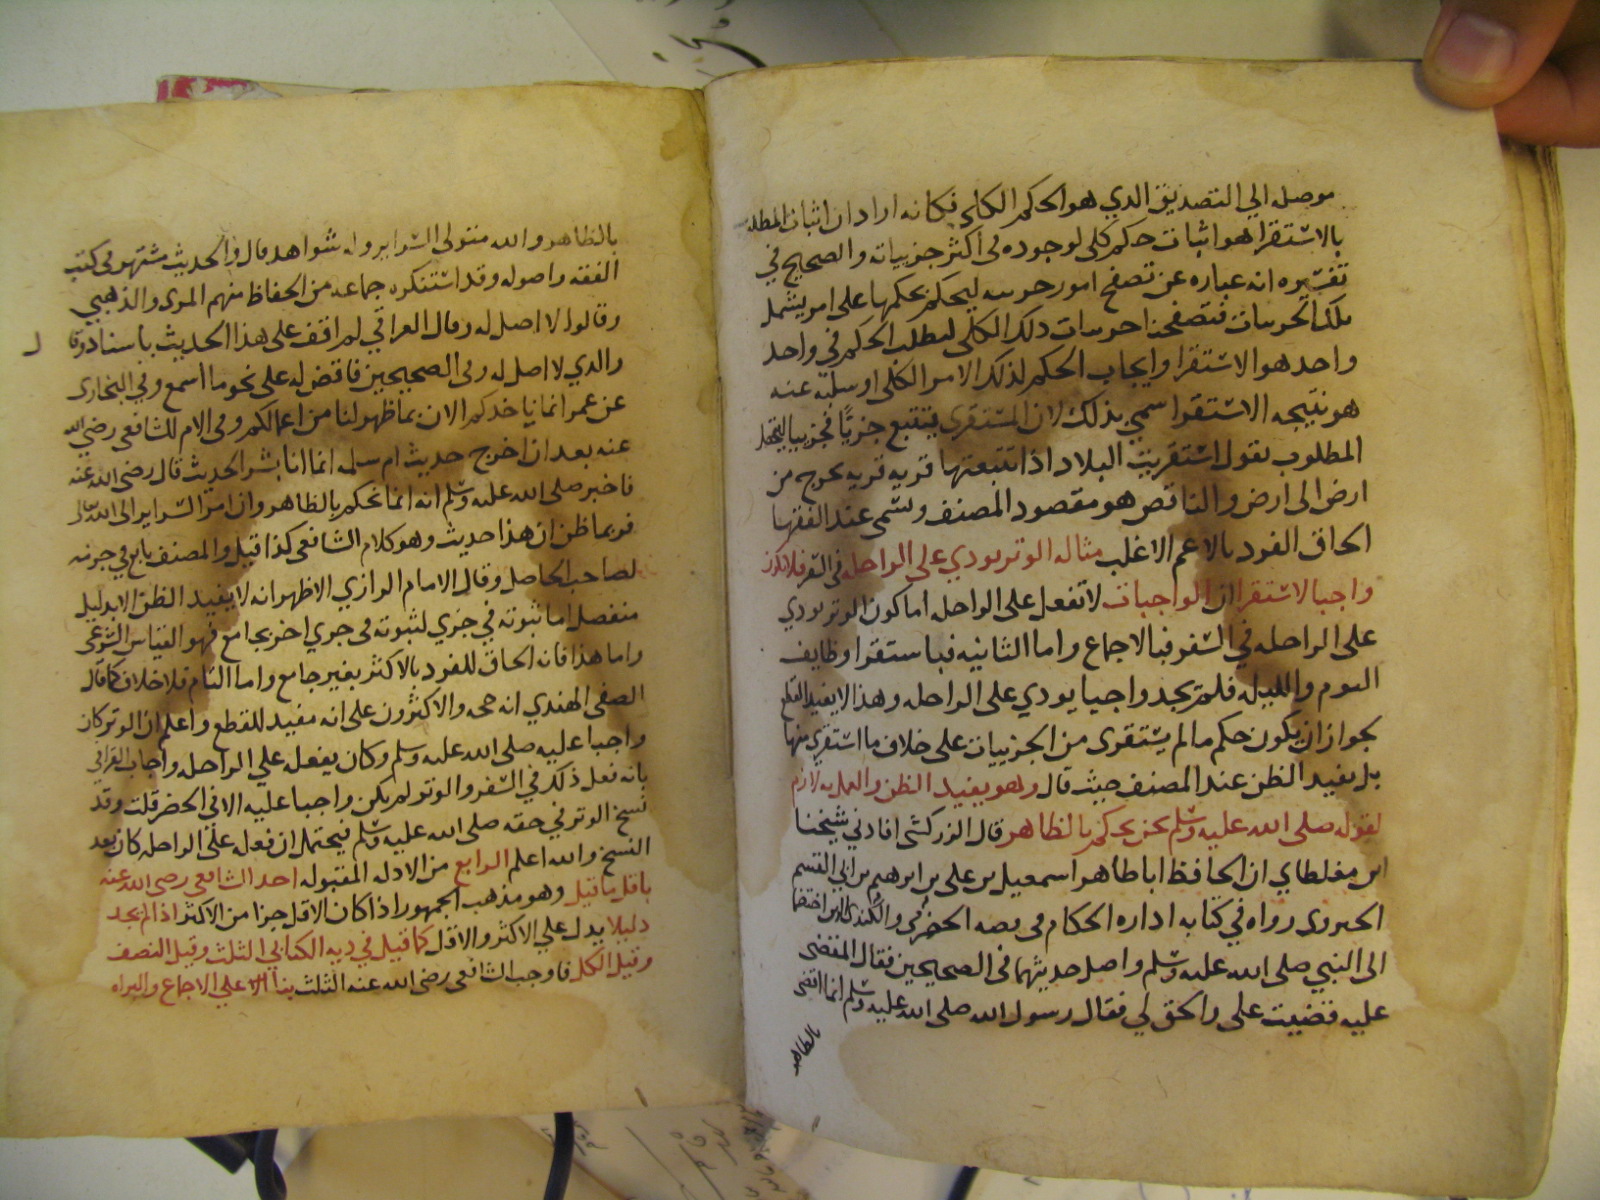 موصله الي التصديق الذي هو الحكم الكلي فكانه اراد ان اثبات المطلوب
بالاستقرا هو اثبات حكم كلي لوجوده في اكثر جزيياته والصحيح في
تفسيره انه عباره عن تصفح امور جزييه ليحكم بحكمها علي امر يشمل
تلك الجزييات فتصفحنا جزييات ذلك الكلي لنطلب الحكم في واحد
واحد هو الاستقرا وايجاب الحكم لذلك الامر الكلي او سلبه عنه
هو نتيجه الاستقرا سمي بذلك لان المستقري يتتبع جزيًا فجزييا
المطلوب تقول استقريت البلاد اذا تتبعتها قريه قريه تخرج من
ارض الي ارض والناقص هو مقصود المصنف ويسمى عند الفقها
الحاق الفرد بالاعم الاغلب مثاله الوتر يودي علي الراحله في السفر فلا يكون
واجبا لاستقرا ان الواجبات لا تفعل على الراحله اما كون الوتر يودي
على الراحله في السفر فبالاجماع واما الثانيه فباستقرا وظايف
اليوم والليله فلم نجد واجبا يودي علي الراحله وهذا لا يفيد القطع
بجواز ان يكون حكم ما لم يستقرى من الجزييات على خلاف ما استقري منها
بل يفيد الظن عند المصنف حيث قال وهو يفيد الظن والعمل به لازم
لقوله صلى الله عليه وسلم نحن نحكم بالظاهر قال الزركشي افادني شيخنا
ابن مغلطاي ان الحافظ ابا طاهر اسمعيل بن على بن ابرهيم بن ابي القسم
الجنزوى رواه في كتابه اداره الحكام في قصه الحضرمي والكندي الذين اختصما
الى النبي صلى الله عليه وسلم واصل حديثهما في الصحيحين فقال المقضى
عليه قضيت على والحق لي فقال رسول الله صلى الله عليه وسلم انما اقضى
بالظاهر
بالظاهر والله متولى السراير وله شواهد قال والحديث مشتهر في كتب
الفقه واصوله وقد استنكره جماعه من الحفاظ منهم المزى والذهبي
وقالوا لا اصل له وقال العراقي لم اقف على هذا الحديث باسناد وقا ل
والذي لا اصل له وفى الصحيحين فاقضى له على نحو ما اسمع وفي البخارى
عن عمر انما ناخذكم الان بما ظهر لنا من اعمالكم وفى الام للشافعي رضي الله
عنه بعد ان اخرج حديث ام سلمه انما انا بشر الحديث قال رضى الله عنه
فاخبر صلى الله عليه وسلم انه انما نحكم بالظاهر وان امر السراير الى الله تعالى
فربما ظن ان هذا حديث وهو كلام الشافعى كذا قيل والمصنف تابع في جزمه
لصاحب الحاصل وقال الامام الرازي الاظهر انه لا يفيد الظن الا بدليل
منفصل اما ثبوته في جزي لثبوته في جزي اخر بجامع فهو القياس الشرعى
واما هذا فانه الحاق للفرد بالاكثر بغير جامع واما التام فلا خلاف كما قال
الصفى الهندي انه حجه والاكثرون على انه مفيد للقطع واعلم ان الوتر كان
واجبا عليه صلى الله عليه وسلم وكان يفعله علي الراحله واجاب القرافي
بانه فعل ذلك في السفر والوتر لم يكن واجبا عليه الا في الحضر قلت وقد
نسخ الوتر في حقه صلى الله عليه وسلم فيحتمل ان فعله علي الراحله كان بعد
النسخ والله اعلم الرابع من الادله المقبوله اخذ الشافعي رضى الله عنه
باقل ما قيل وهو مذهب الجمهور اذا كان الاقل جزا من الاكثر اذا لم يجد
دليلا يدل علي الاكثر والاقل كما قيل في ديه الكتابي الثلث وقيل النصف
وقيل الكل فاوجب الشافعى رضى الله عنه الثلث بنا علي الاجماع والبراه